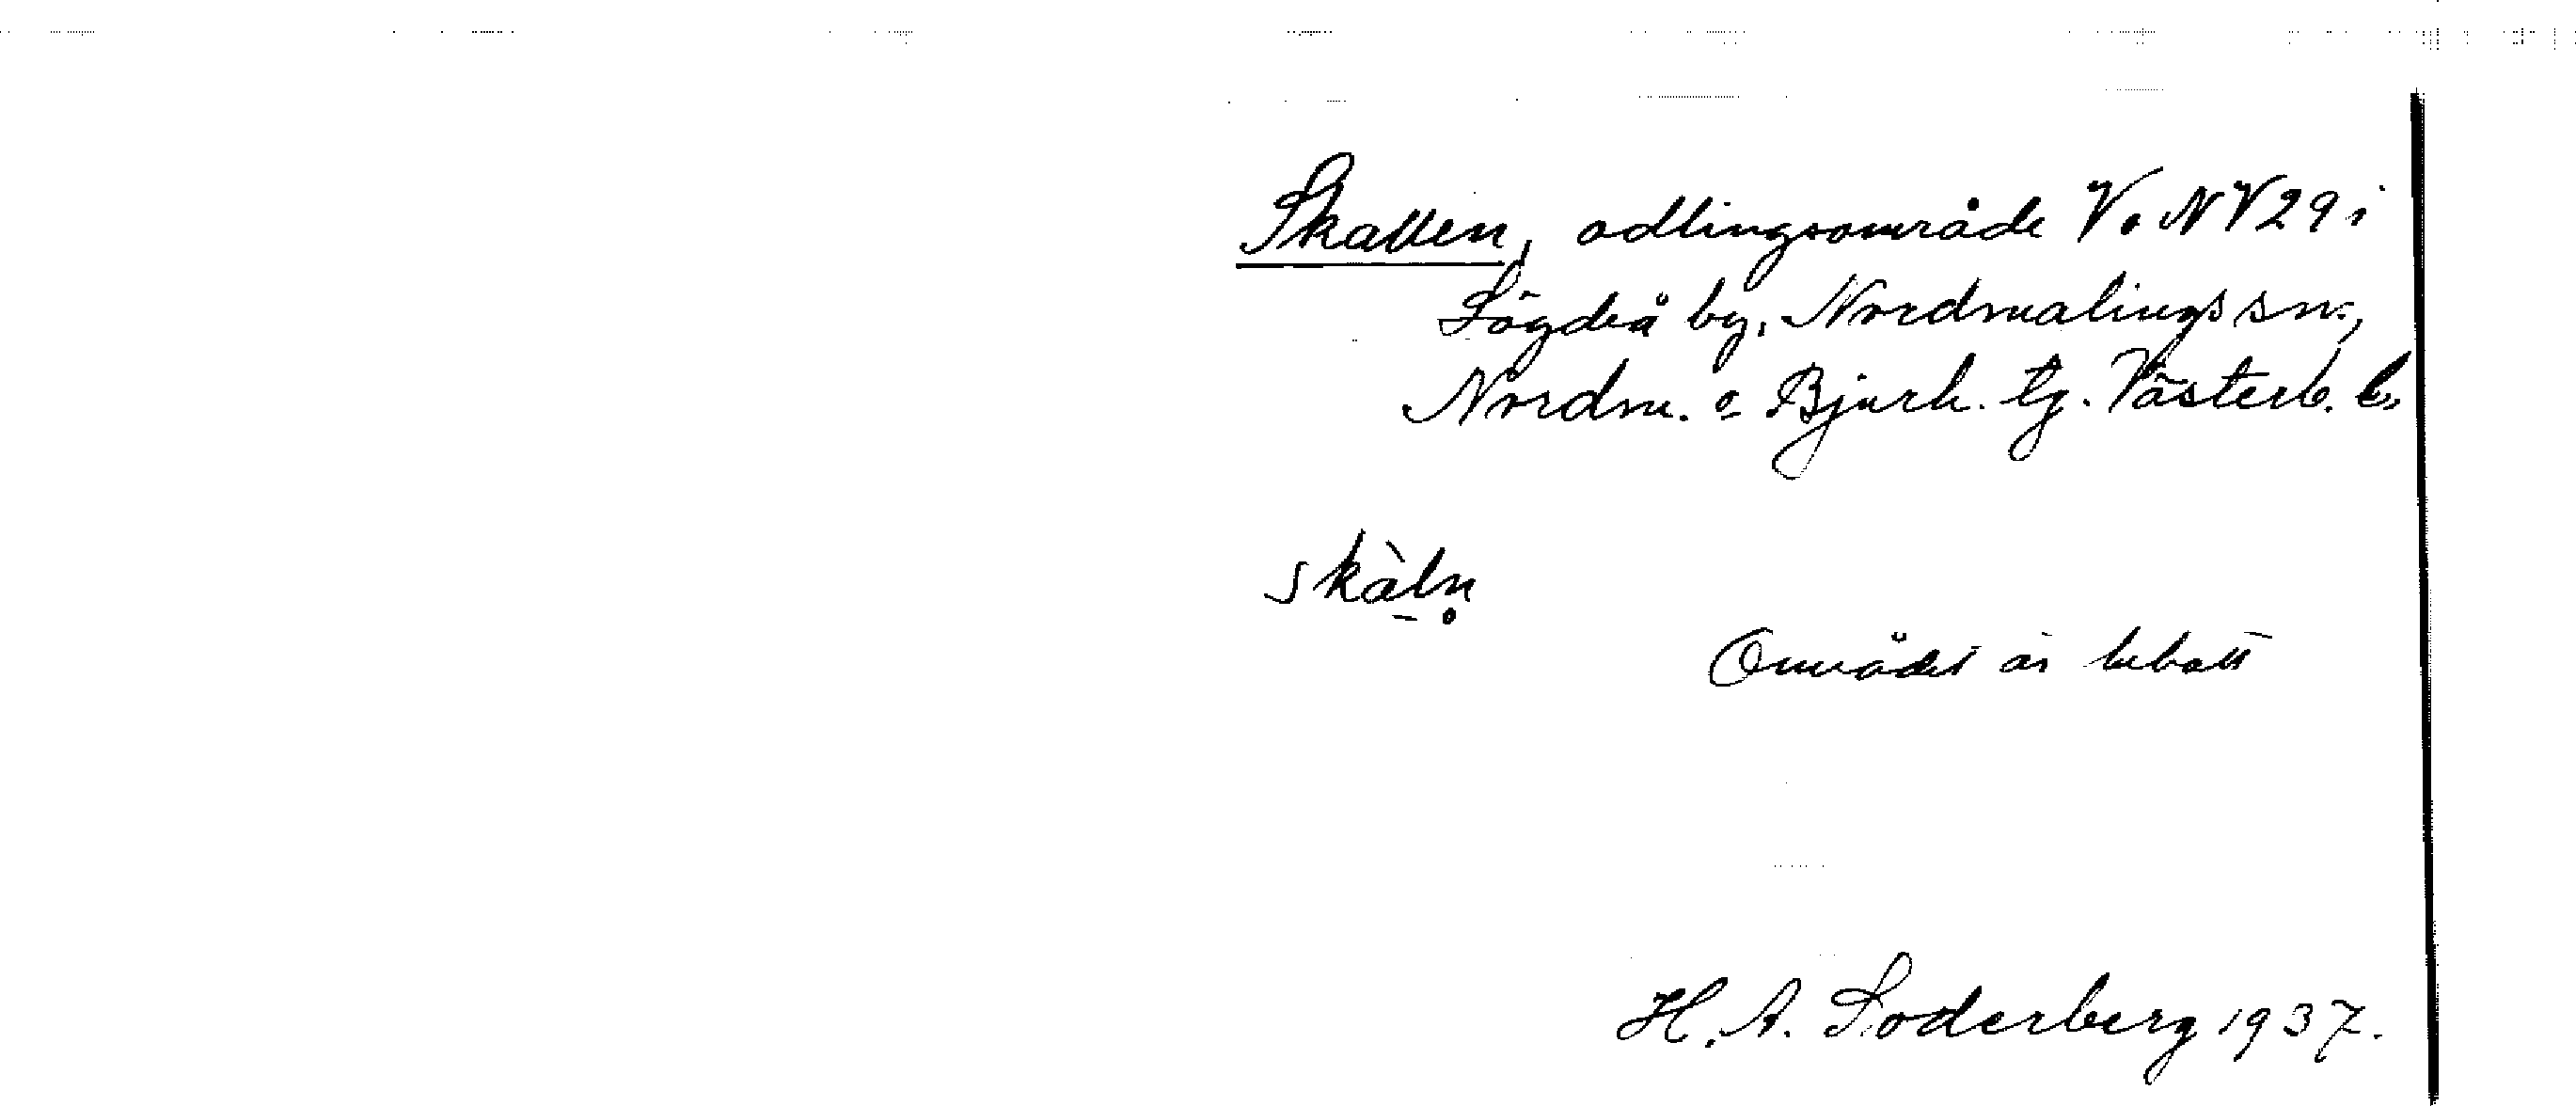 Skallen, odlingsområde V. NV29 i
Lögdeå by, Nordmalings sn.,
Nordm. o Bjurh. tg. Västerb. l.
skàln̥
Området är bebott
H. A. Söderberg 1937.